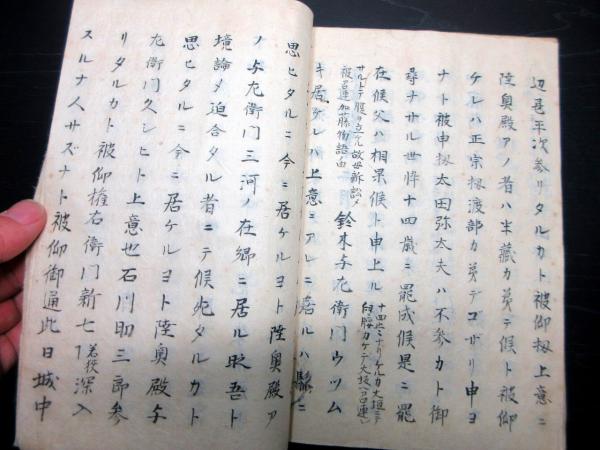 辺邑平次参リタルカト被仰扨上意ニ
陸奥殿アノ者ハ半蔵カ弟テ候ト被仰
ケレハ正宗扨渡部カ弟デゴザリ申ヨ
ナト被申扨太田弥太夫ハ不参カト御
尋ナサル世悴十四歳ニ罷成候是ニ罷
在候父ハ相果候ト申上ル
サルトテ腹ヲ立ル故毎訴訟メ
被召連加藤物語由
鈴木与左衛門ウツム
キ居ケレハ上意ニアレニ居ルハ
思ヒタルニ今ニ居ケルヨト陸奥殿ア
ノ与左衛門三河ノ在郷ニ居ル時吾ト
境論メ迫合タル者ニテ候死タルカト
思ヒタルニ今ニ居ケルヨト陸奥殿与
左衛門久シヒト上意也石川昭三郎参
リタルカト被仰権右衛門新七
若狭
深入
スルナ人サズナト被仰御通此日城中